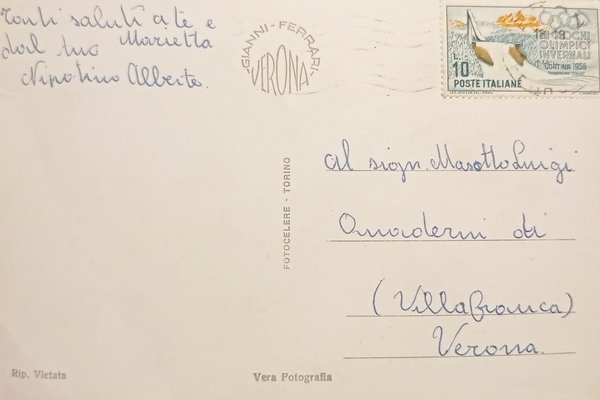 Tanti saluti a te e
Marietta
dal tuo
Nipotino Alberto.
GIANNI-FERRARI-
VERONA
GIOCHI
OLIMPICI
INVERNALI
CORTINA 1956
L. 10
POSTE ITALIANE
FOTOCELERE - TORINO
al sign. Masotto Luigi
Quaderni di
(Villafranca)
Verona.
Rip. Vietata
Vera Fotografia